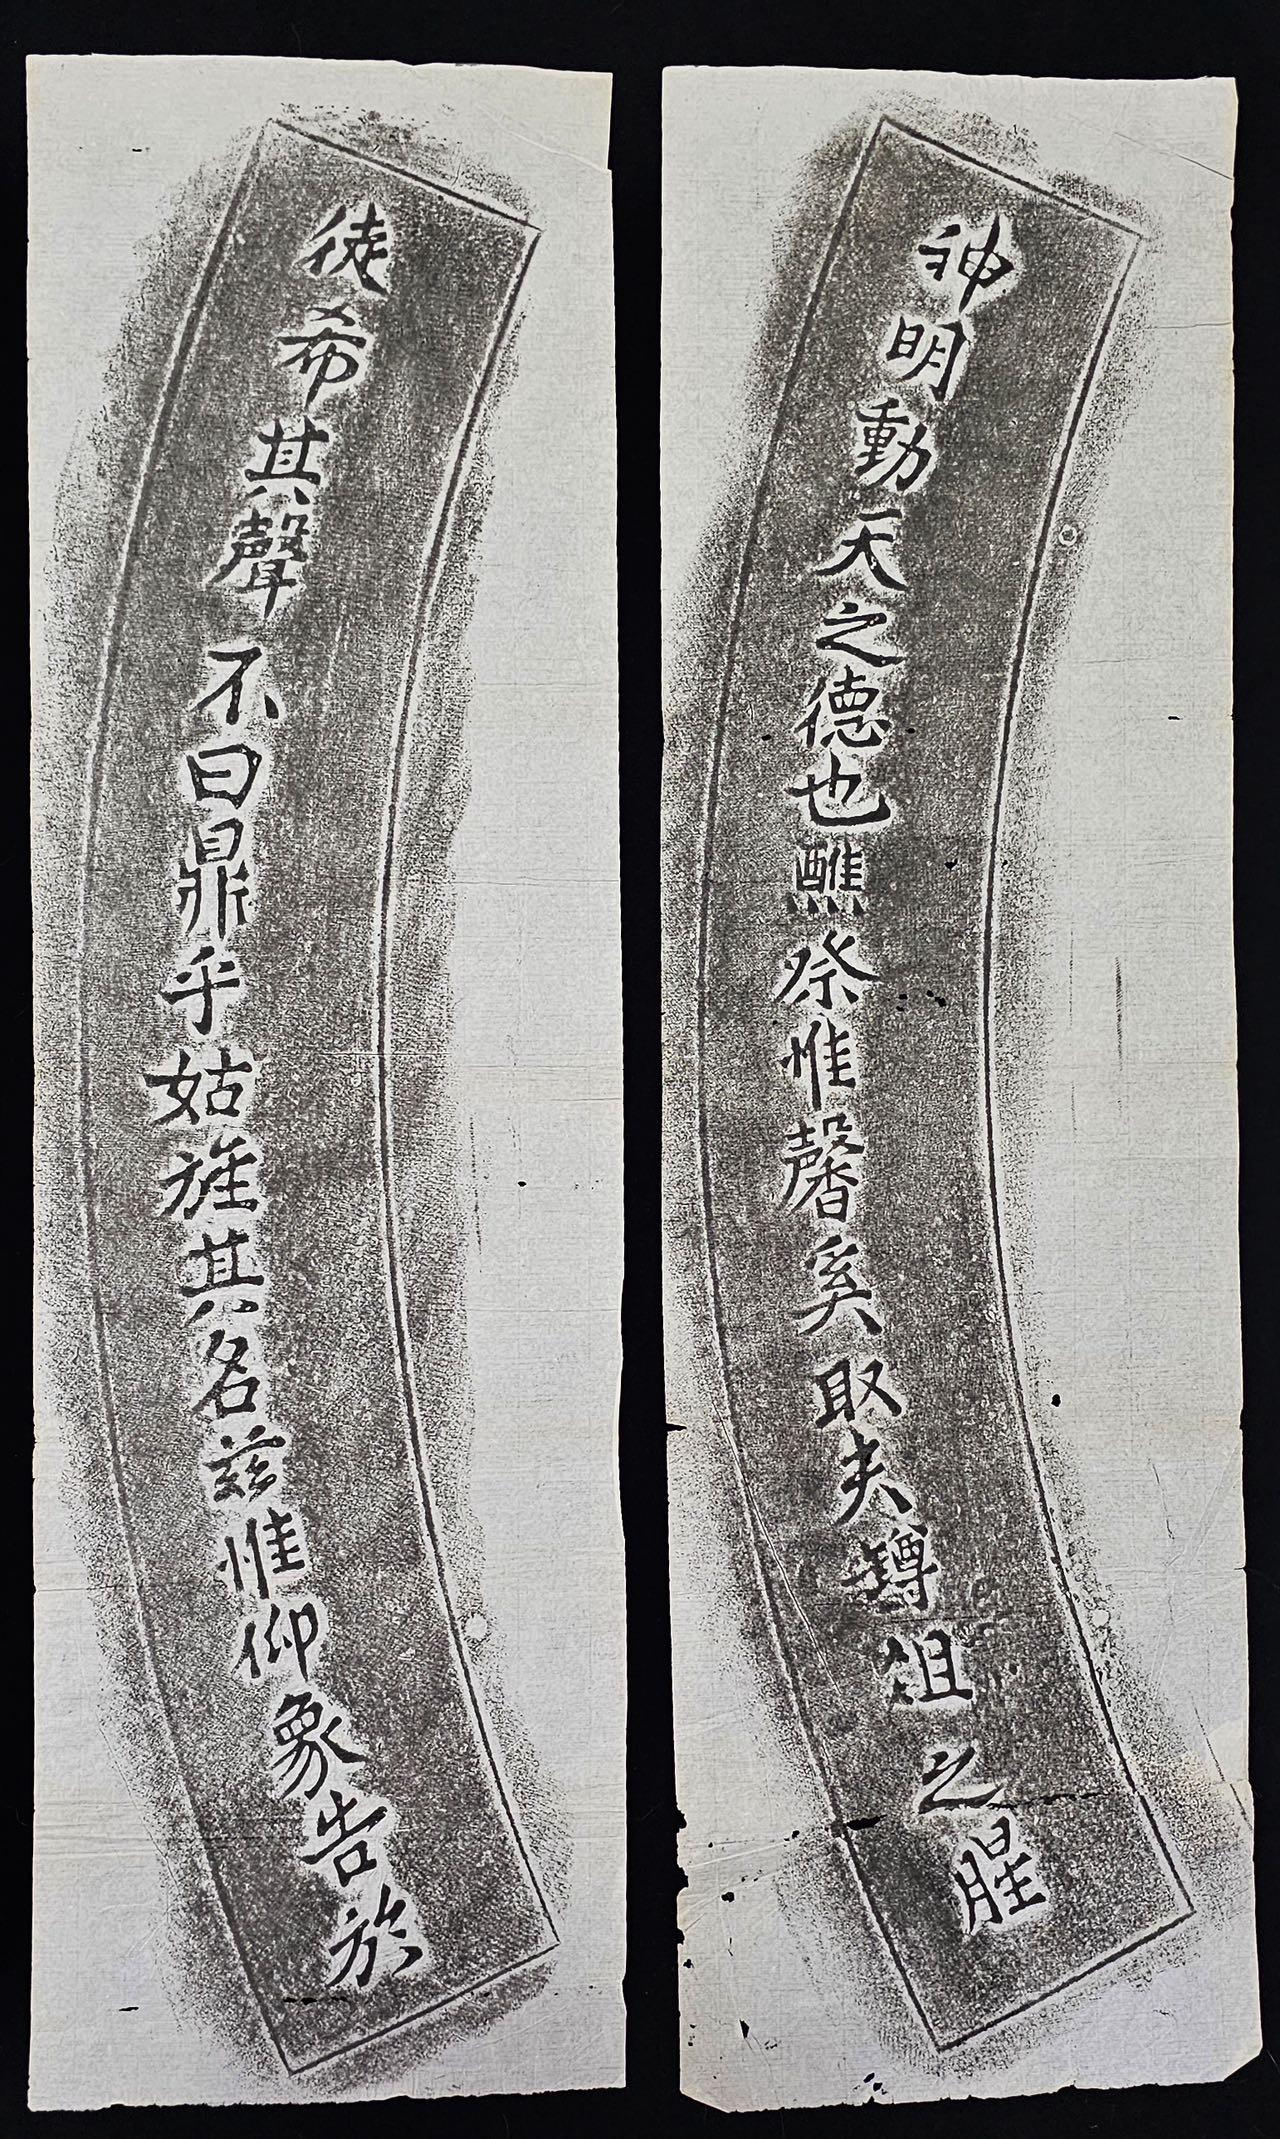 徒希其聲不曰鼎乎姑旌其名兹惟仰象告於
神明動天之德也醮祭惟馨奚取夫罇俎之腥